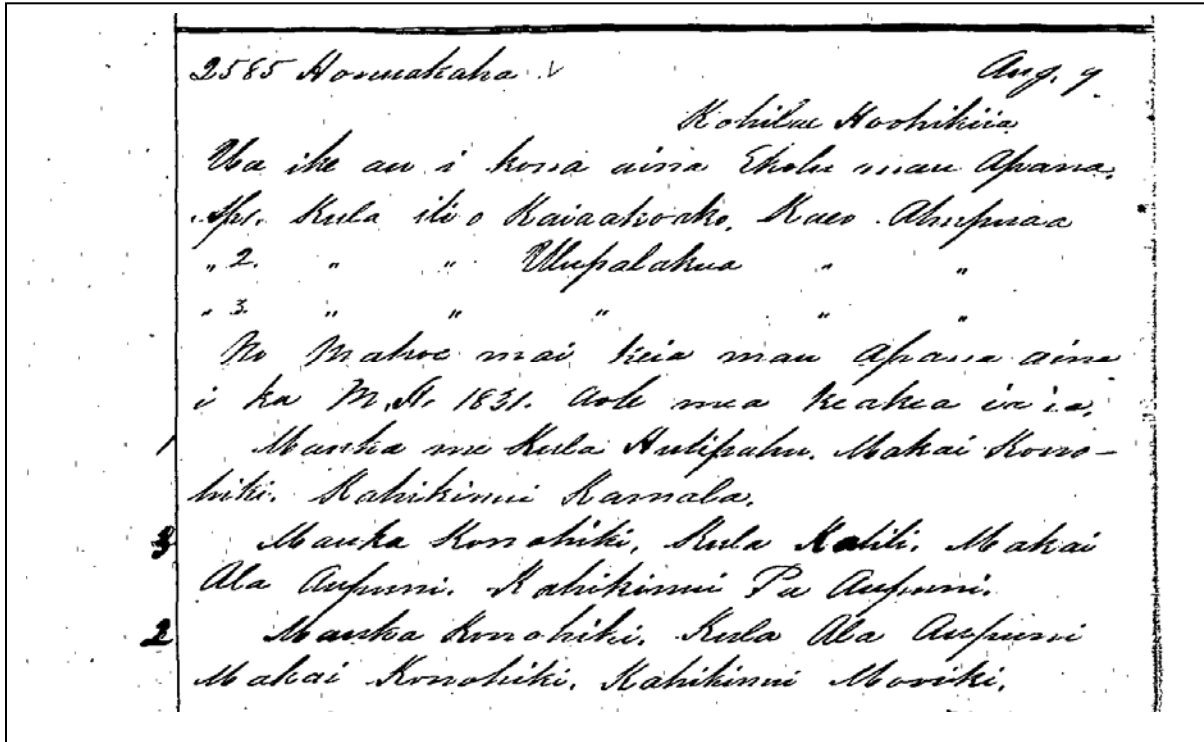 2585 Honuakaha √ Aug. 9
Kohilae Hoohikiia
Ua ike au i kona aina Ekolu mau Apana.
Ap1. Kula ili o Kaiaakoako, Kaeo Ahupuaa
„ 2. „ „ Ulupalakua „ „
„ 3. „ „ „ „ „
No Mahoe mai keia mau apana aina
i ka M.H. 1831. Aole mea keakea ia ia.
1 Mauka me Kula Hulipahu. Makai Kono-
hiki. Kahikinui Kamala.
3 Mauka Konohiki, Kula Kalili. Makai
Ala Aupuni. Kahikinui Pa Aupuni.
2 Mauka Konohiki. Kula Ala Aupuni
Makai Konohiki. Kahikinui Moniki.